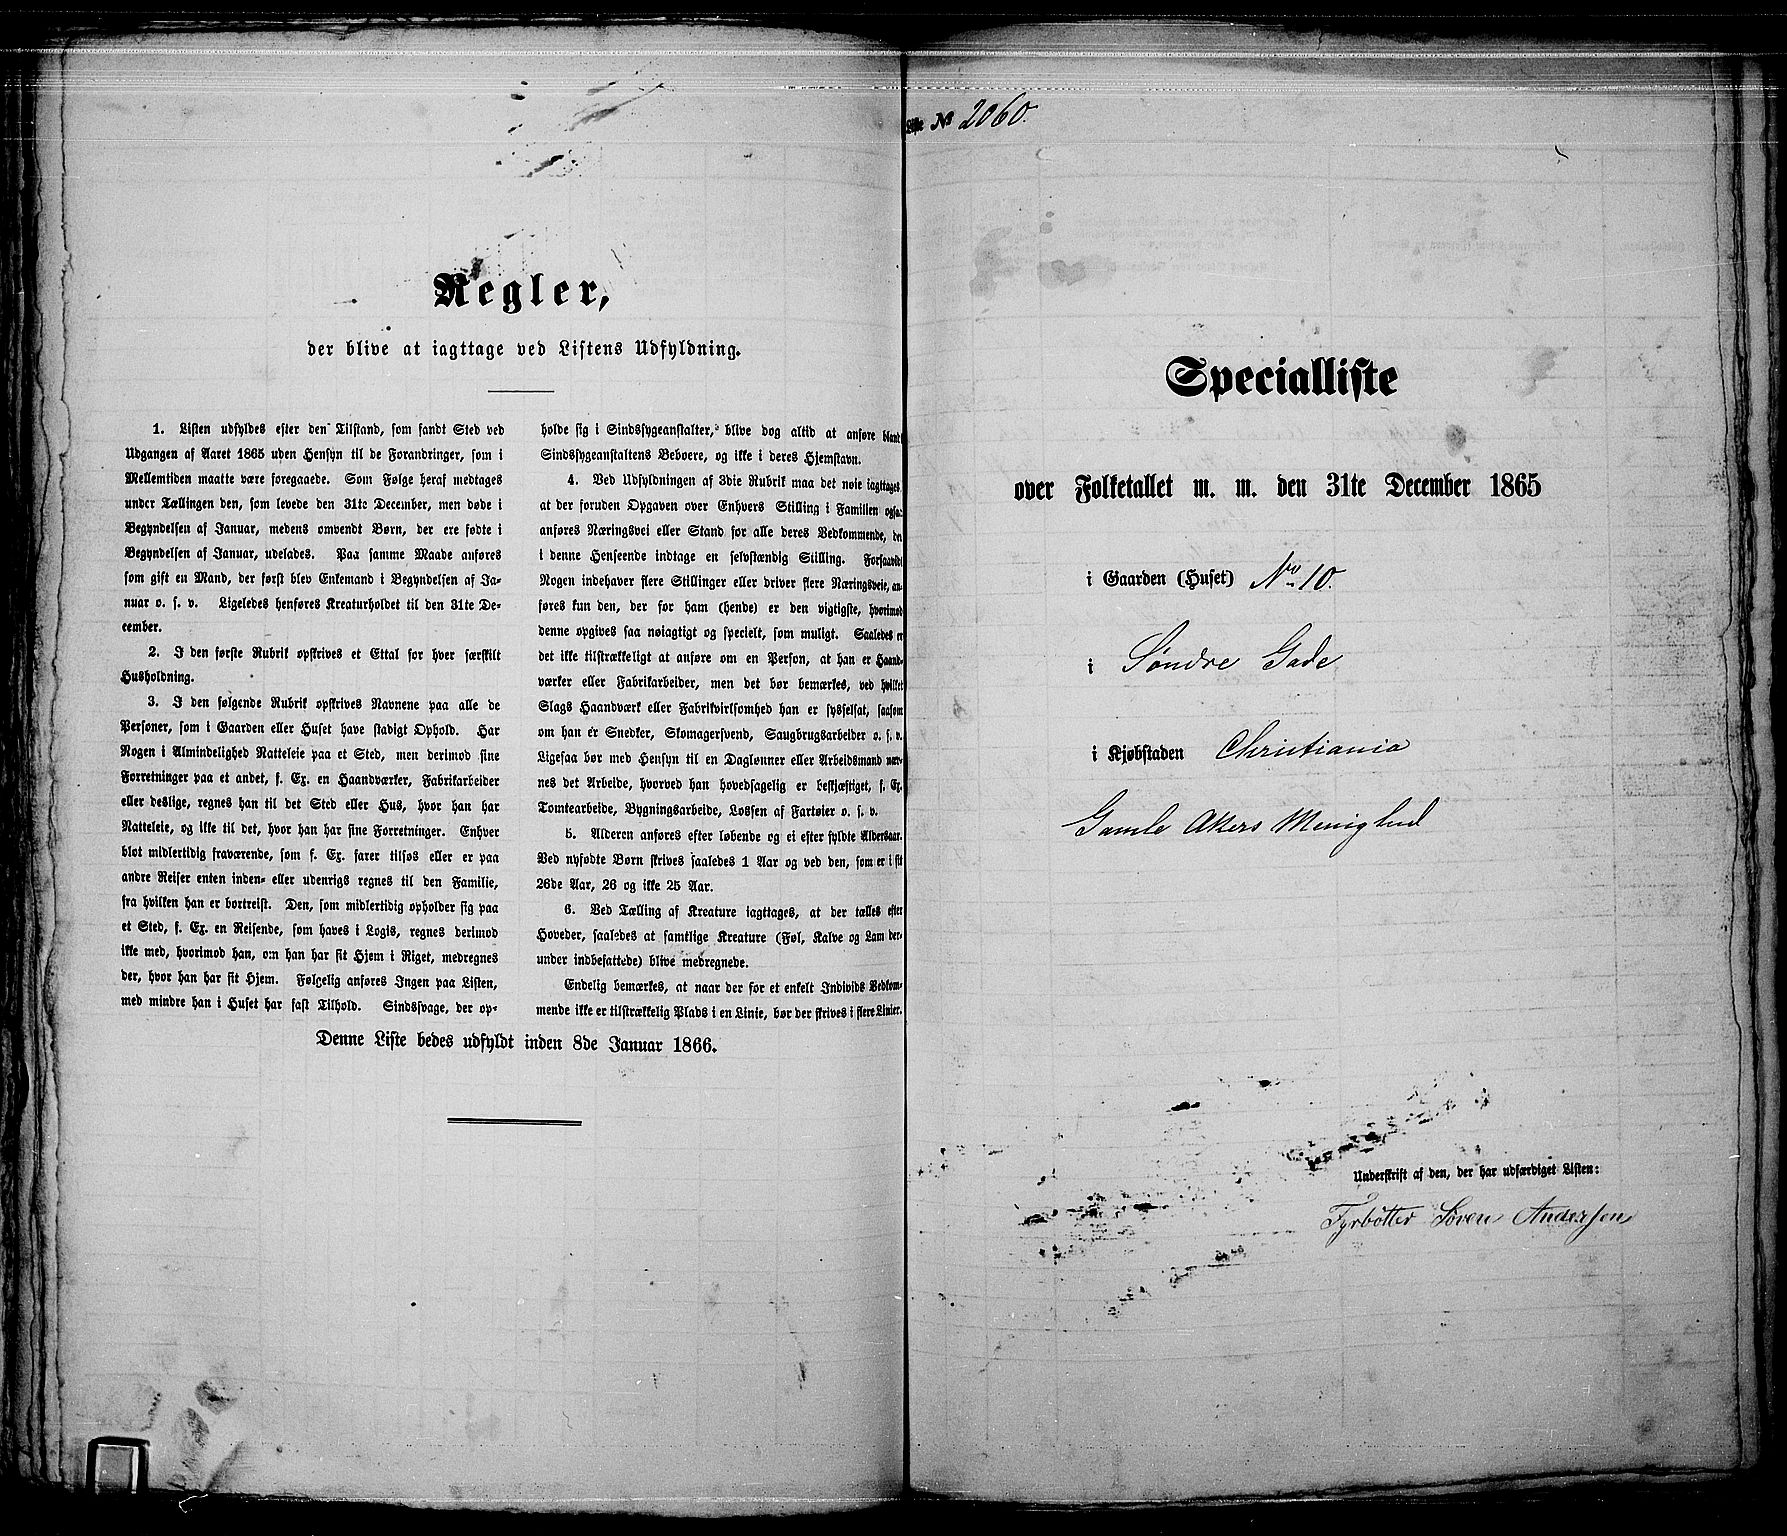 Regler,
der blive at iagttage ved Listens Udfyldning.
1. Listen udfyldes efter den Tilstand, som fandt Sted ved
Udgangen af Aaret 1865 uden Hensyn til de Forandringer, som i
Mellemtiden maatte være foregaaede. Som Følge heraf medtages
under Tællingen den, som levede den 31te December, men døde i
Begyndelsen af Januar, medens omvendt Børn, der ere fødte i
Begyndelsen af Januar, udelades. Paa samme Maade anføres
som gift en Mand, der først blev Enkemand i Begyndelsen af Ja-
nuar o. s. v. Ligeledes henføres Kreaturholdet til den 31te De-
cember.
2. I den første Rubrik opskrives et Ettal for hver særskilt
Husholdning.
3. I den følgende Rubrik opskrives Navnene paa alle de
Personer, som i Gaarden eller Huset have stadigt Ophold. Har
Nogen i Almindelighed Natteleie paa et Sted, men derimod sine
Forretninger paa et andet, f. Ex. en Haandværker, Fabrikarbeider
eller deslige, regnes han til det Sted eller Hus, hvor han har
Natteleie, og ikke til det, hvor han har sine Forretninger. Enhver
blot midlertidig fraværende, som f. Ex. farer tilsøs eller er paa
andre Reiser enten inden- eller udenrigs regnes til den Familie,
fra hvilken han er bortreist. Den, som midlertidig opholder sig paa
et Sted, f. Ex. en Reisende, som haves i Logis, regnes derimod
ikke med, hvorimod han, om han har sit Hjem i Riget, medregnes
der, hvor han har sit Hjem. Følgelig anføres Ingen paa Listen,
med mindre han i Huset har fast Tilhold. Sindssvage, der op-
holde sig i Sindssygeanstalter, blive dog altid at anføre blandt
Sindssygeanstaltens Beboere, og ikke i deres Hjemstavn.
4. Ved Udfyldningen af 3die Rubrik maa det nøie iagttages,
at der foruden Opgaven over Enhvers Stilling i Familien ogsaa
anføres Næringsvei eller Stand for alle deres Vedkommende, der
i denne Henseende indtage en selvstændig Stilling. Forsaavidt
Nogen indehaver flere Stillinger eller driver flere Næringsveie, an-
føres kun den, der for ham (hende) er den vigtigste, hvorimod
denne opgives saa nøiagtigt og specielt, som muligt. Saaledes er
det ikke tilstrækkeligt at anføre om en Person, at han er Haand-
værker eller Fabrikarbeider, men det bør bemærkes, ved hvilket
Slags Haandværk eller Fabrikvirksomhed han er sysselsat, saasom
om han er Snedker, Skomagersvend, Saugbrugsarbeider o. s. v.
Ligesaa bør med Hensyn til en Daglønner eller Arbeidsmand næv-
nes det Arbeide, hvorved han hovedsagelig er beskjæftiget, f. Ex.
Tomtearbeide, Bygningsarbeide, Lossen af Fartøier o. s. v.
5. Alderen anføres efter løbende og ei efter fyldte Aldersaar.
Ved nyfødte Børn skrives saaledes 1 Aar og ved den, som er i sit
26de Aar, 26 og ikke 25 Aar.
6. Ved Tælling af Kreature iagttages, at der tælles efter
Hoveder, saaledes at samtlige Kreature (Føl, Kalve og Lam der-
under indbefattede) blive medregnede.
Endelig bemærkes, at naar der for et enkelt Individs Vedkom-
mende ikke er tilstrækkelig Plads i en Linie, bør der skrives i flere Linier.
Denne Liste bedes udfyldt inden 8de Januar 1866.
Liste № 2060.
Specialliste
over Folketallet m. m. den 31te December 1865
i Gaarden (Huset) No 10.
i Søndre Gade
i Kjøbstaden Christiania
Gamle Akers Menighed
Underskrift af den, der har udfærdiget Listen:
Fyrbøtter Søren Andersen